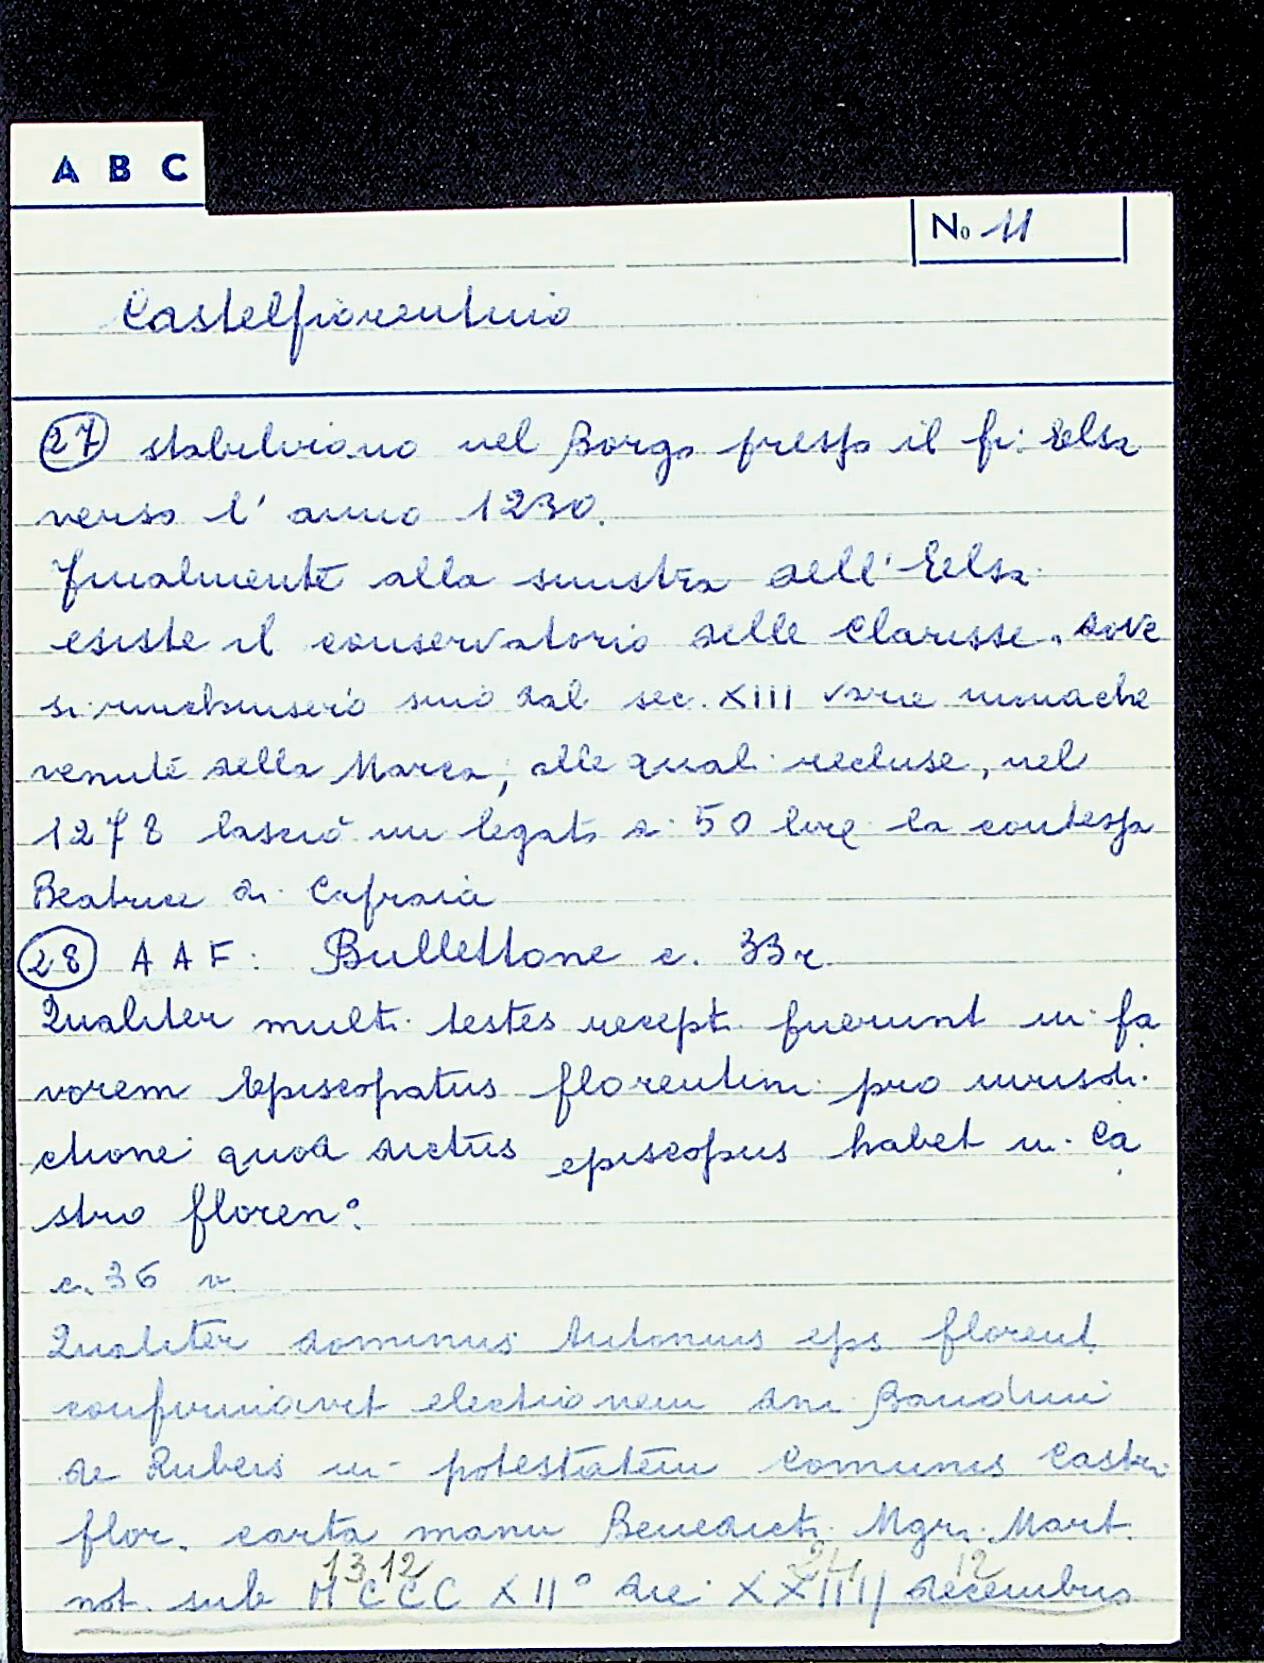 A B C
No 11
Castelfiorentino
27 stabilirono nel Borgo presso il fi: Elsa
verso l' anno 1230.
Finalmente alla sinistra dell' Elsa
esiste il conservatorio delle Clarisse, dove
si rinchiusero sino dal sec. XIII varie monache
venute della Marca, alle quali recluse, nel
1278 lasciò un legato di 50 lire la contessa
Beatrice di Capraia
28 A A F: Bullettone c. 33 r.
Qualiter multi testes recepti fuerunt in fa
vorem Episcopatus florentini pro iurisdi
ctione quod dictus episcopus habet in Ca
stro floren°.
c. 36 v.
Qualiter dominus Antonius eps florent.
confirmavit electionem dni Bandini
de Rubeis in potestatem Comunis Castri
flor. carta manu Benedicti Mgri Mart.
1312 24 12
not. sub MCCCXII° die XXIIII decembris